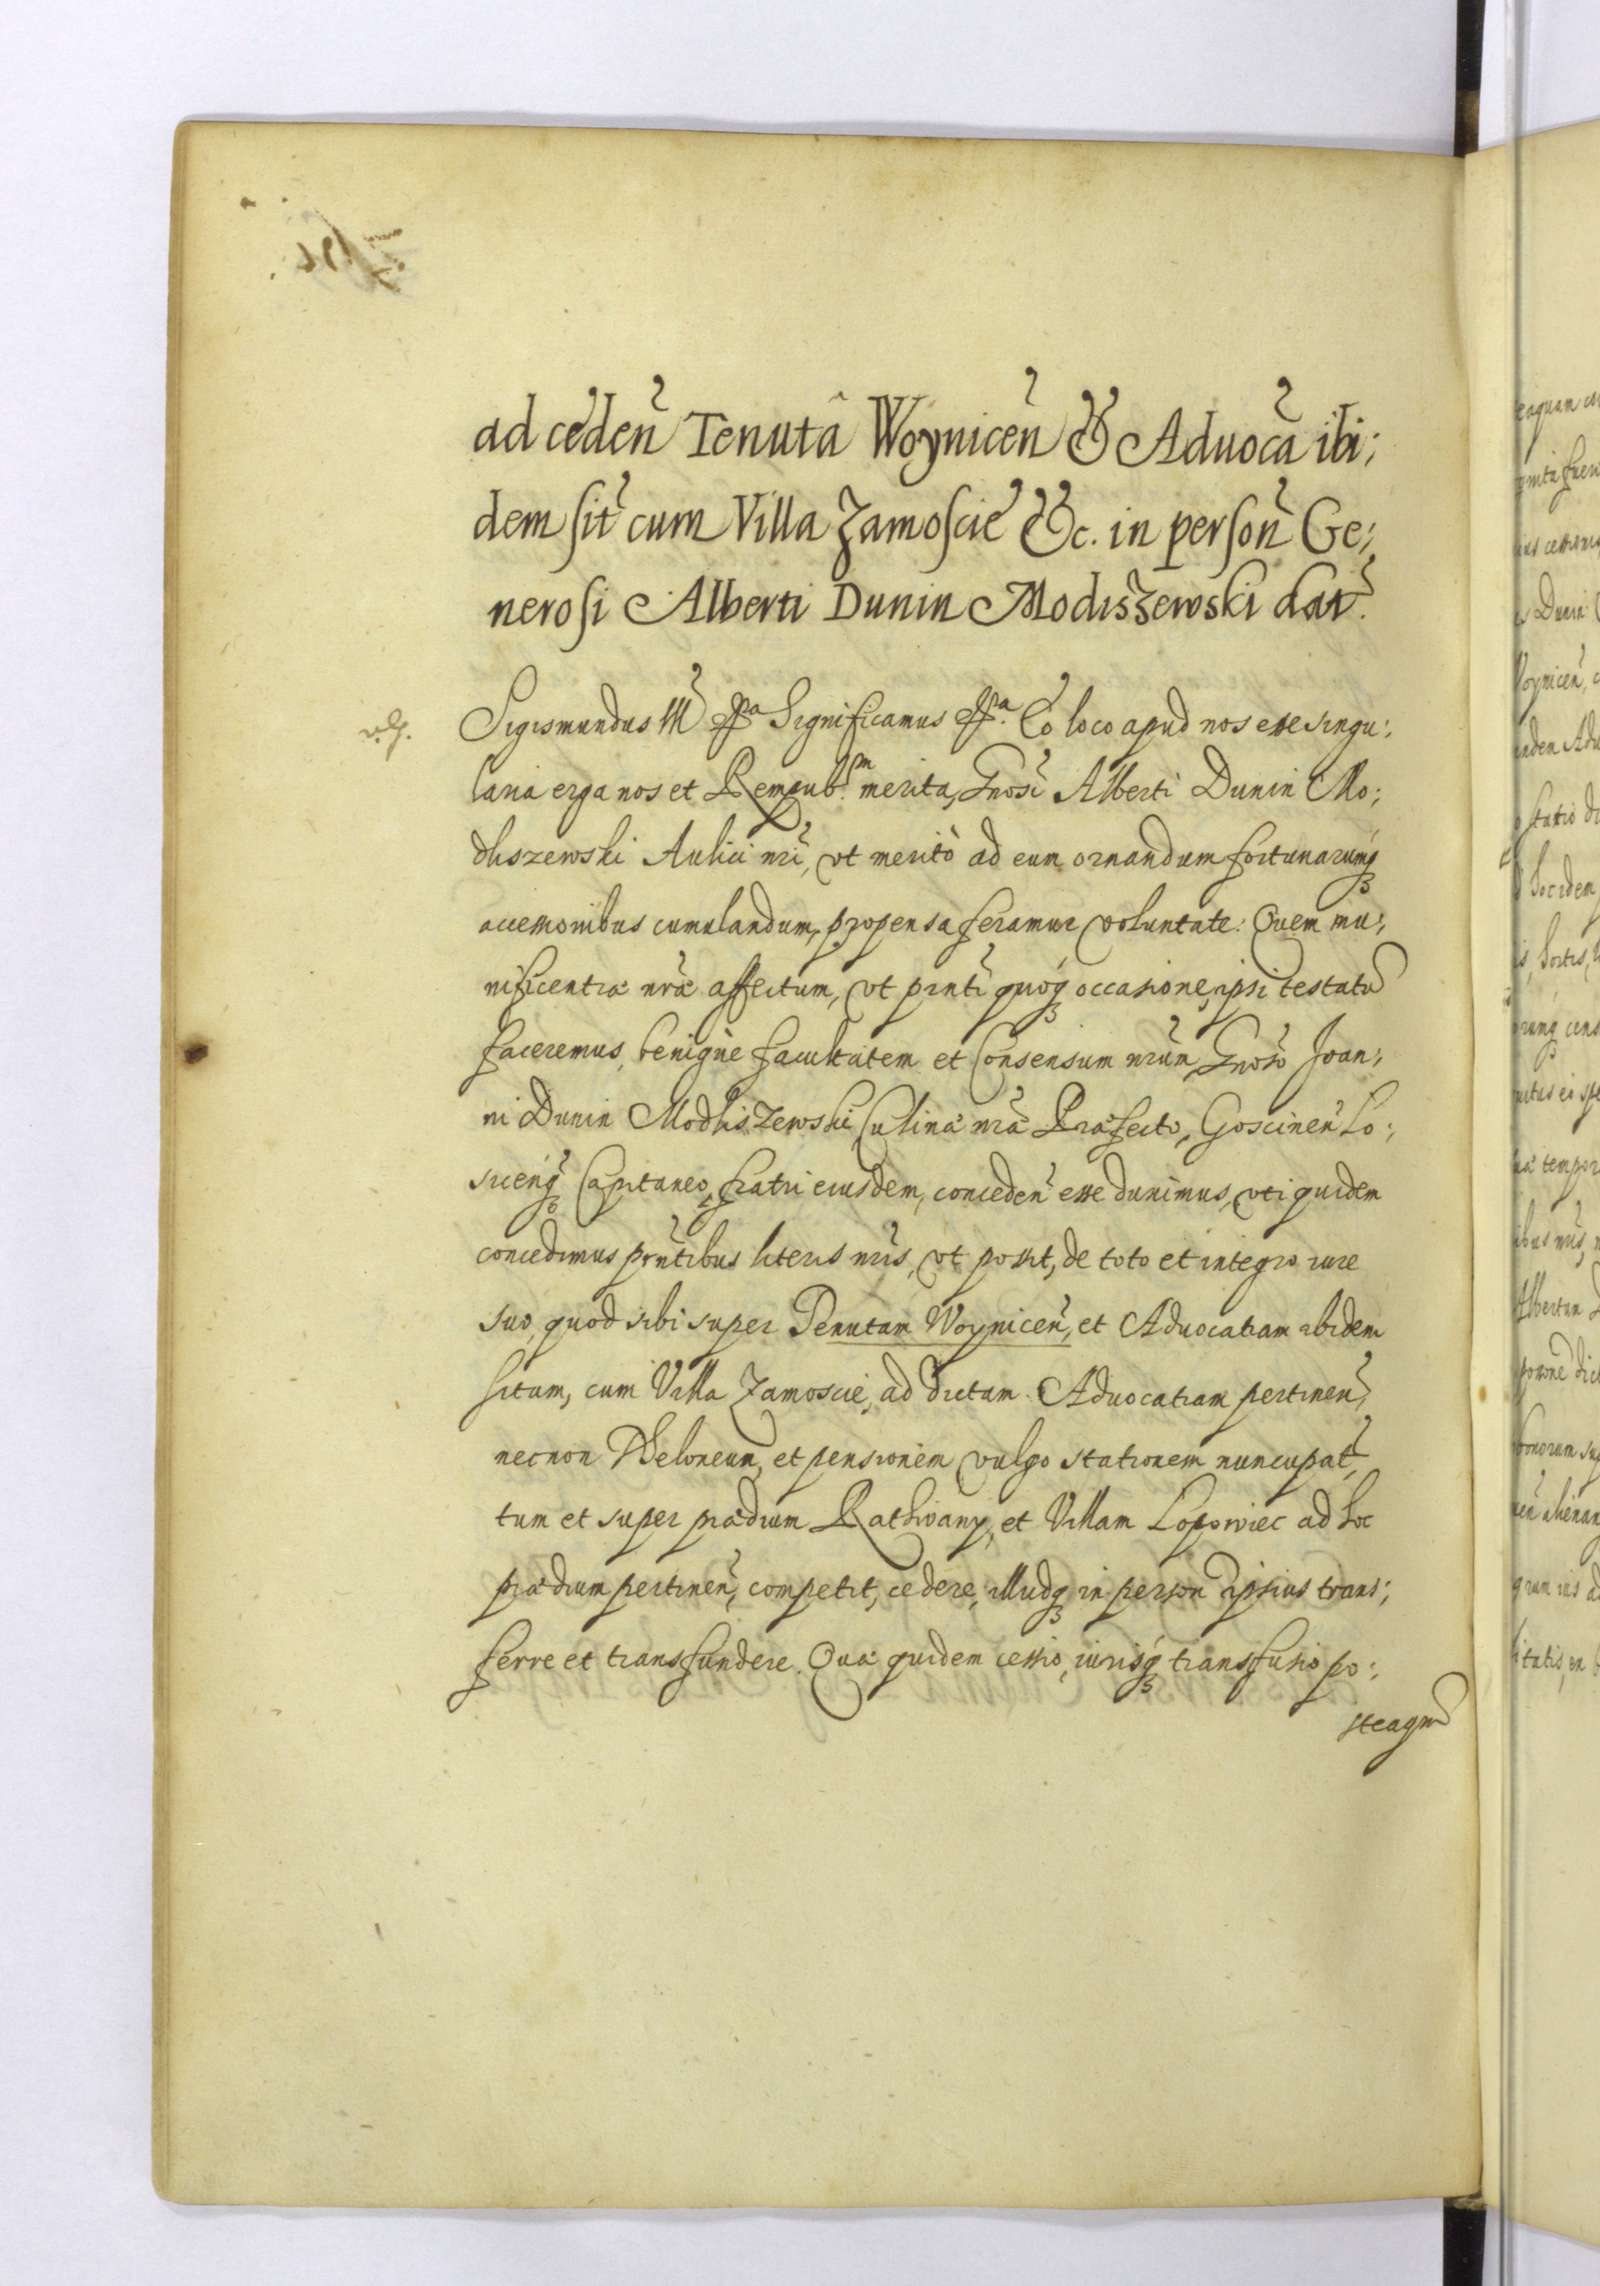 ad ceden̄ Tenutâ Woynicen̄ & Aduocā ibi;
dem sit̄ cum Villa Zamoscie &c. in person̄ Ge;
nerosi Alberti Dunin Modiszewski dat̄.
Sigismundus III Significamus Eo loco apud nos esse singu:
laria erga nos et Rempub.m merita, Gnosi Alberti Dunin Mo;
dliszewski Aulici nri, vt meritò ad eum ornandum fortunarumq
accessionibus cumulandum, propensa feramur voluntate: Quem mu;
nificentia nrā affectum, vt pnti quoq occasione, ipsi testatū
faceremus, benignè facultatem et Consensum nrūm, Gnoso Joan;
ni Dunin Modliszewski Culina nra Præfecto, Goscinen̄ Lo;
sicenq Capitaneo, fratri eiusdem, conceden̄ esse duximus, vti quidem
concedimus pn̄tibus literis nris, vt possit, de toto et integro iure
suo, quod sibi super Tenutam Woynicen̄, et Aduocatiam ibidem
sitam, cum Villa Zamoscie, ad dictam Aduocatiam pertinen̄,
necnon Theloneum, et pensionem vulgo stationem nuncupat̄,
tum et super prædium Rathwany, et Villam Lopowiec ad hoc
prædium pertinen̄, competit, cedere, illudq in person̄ ipsius trans;
ferre et transfundere. Qua quidem cessio, iurisq transfusio po;
steaqū